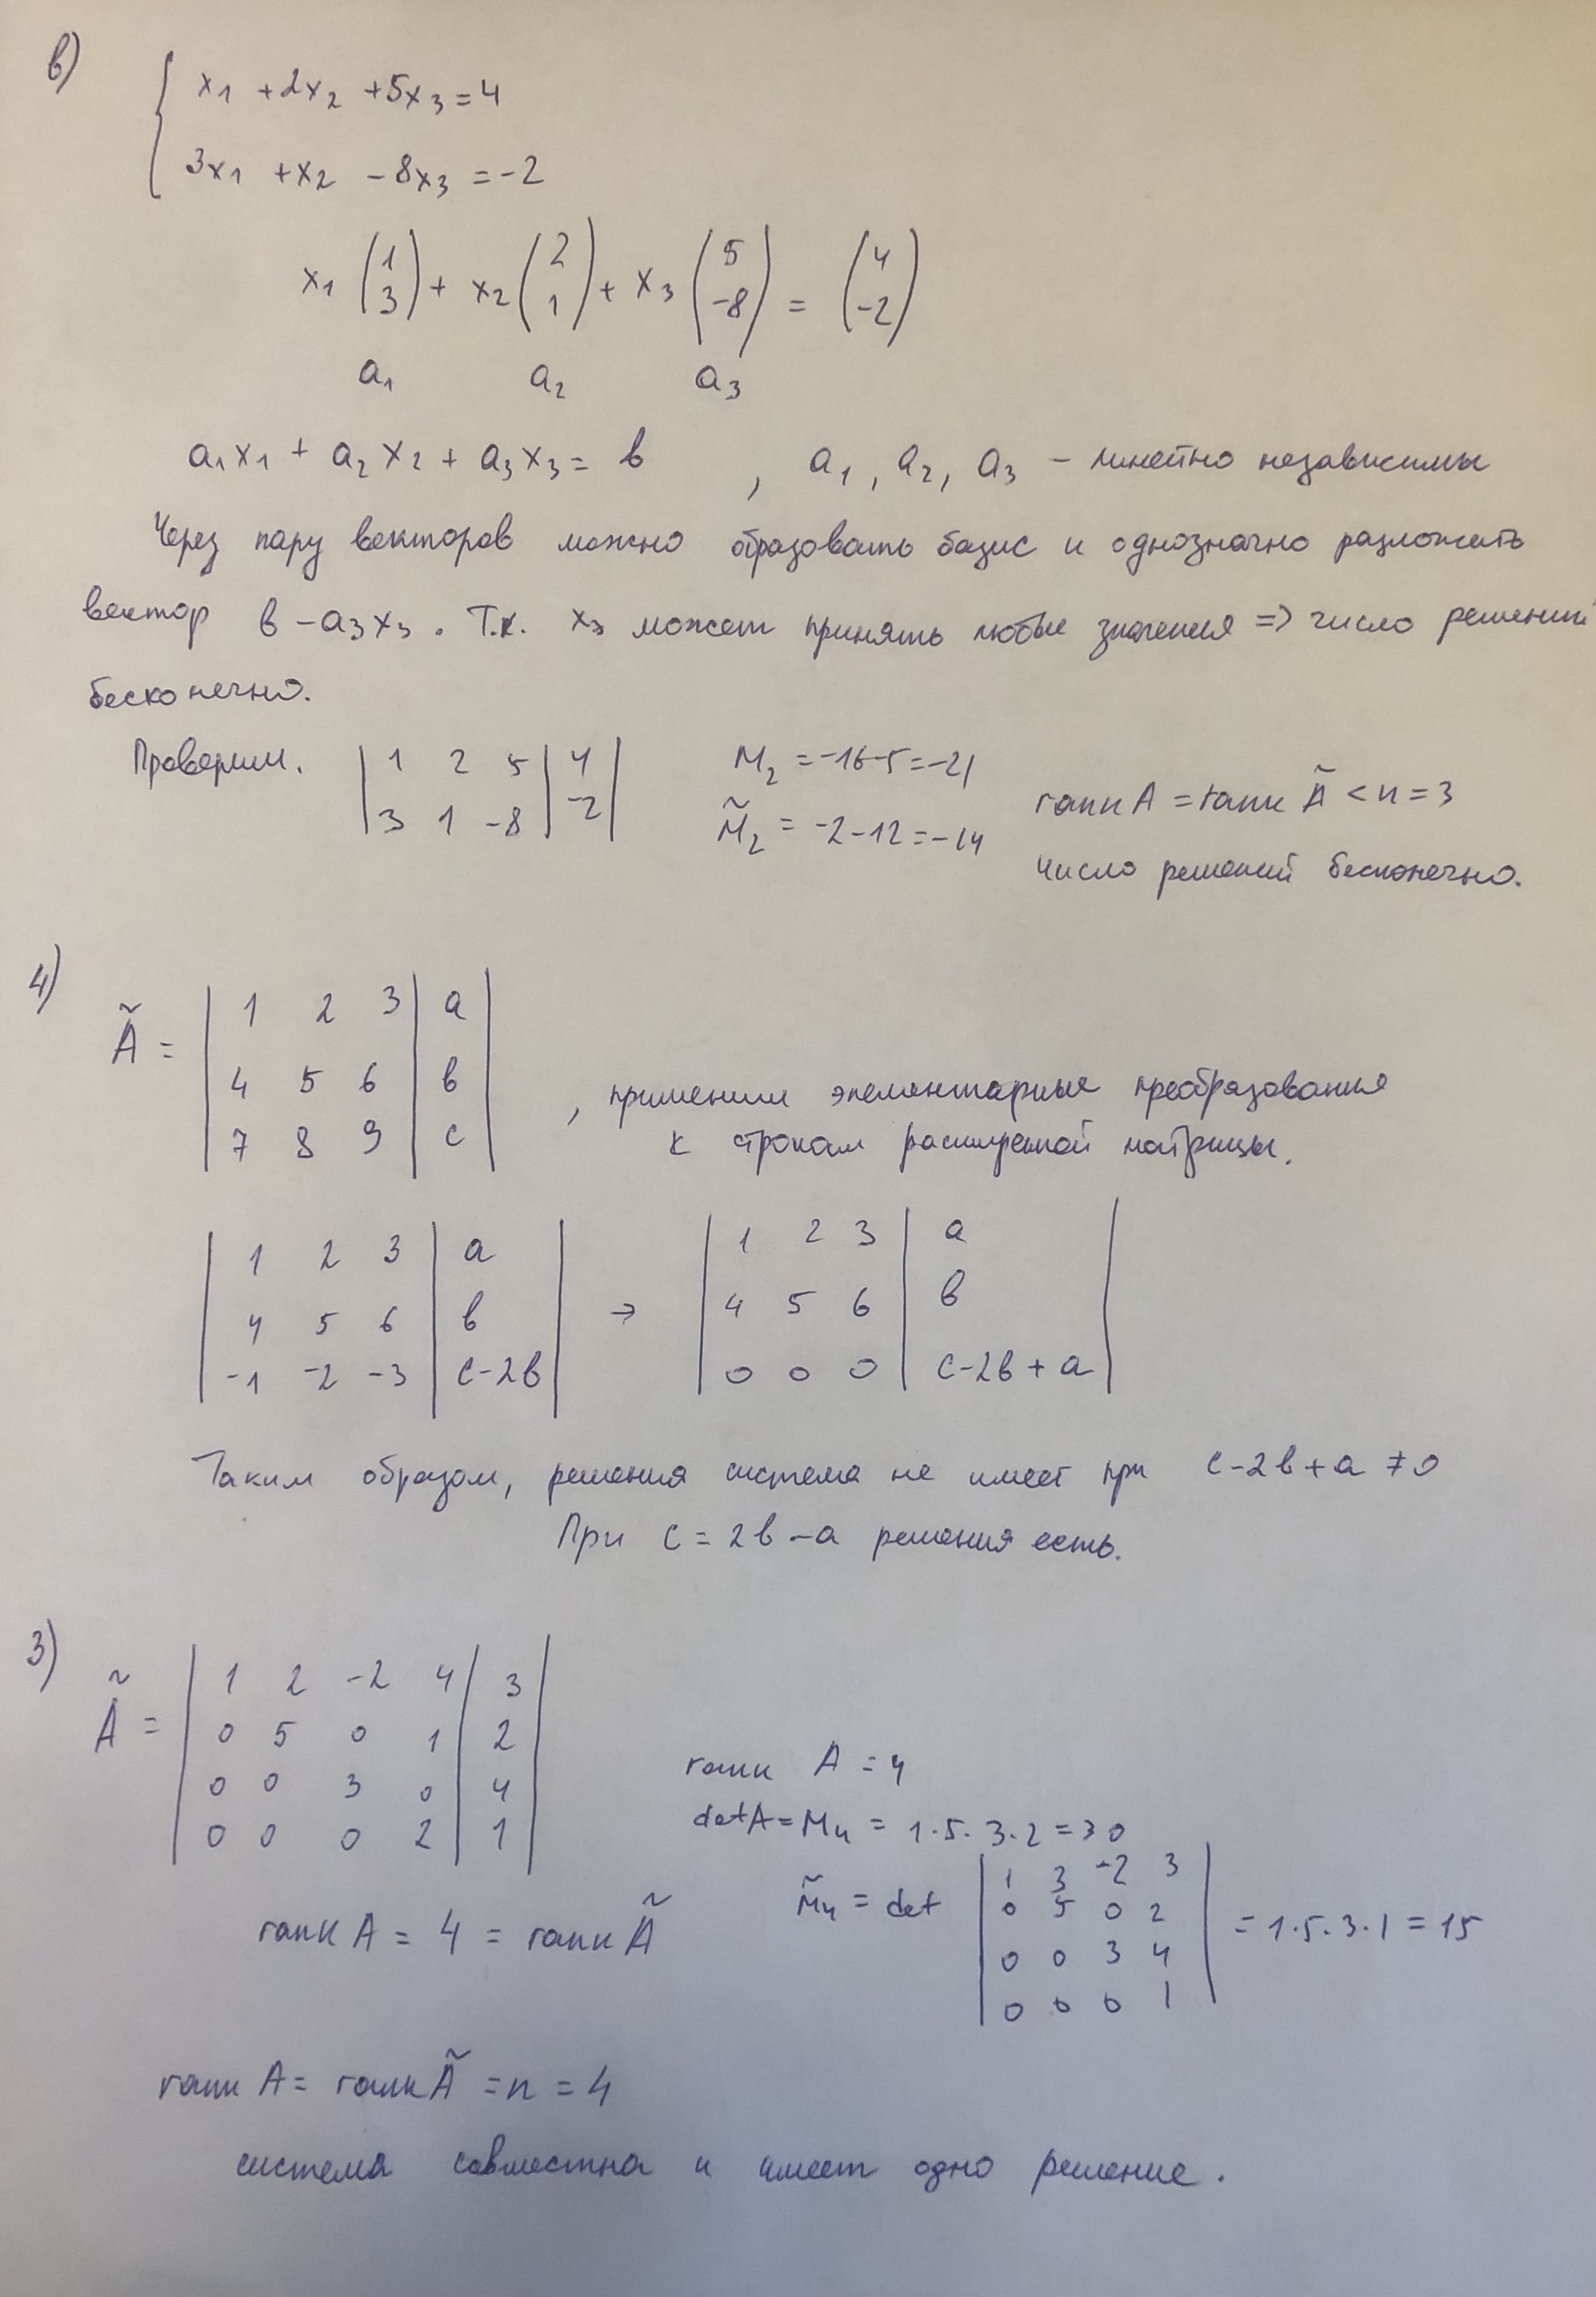 в)
x1 + 2x2 + 5x3 = 4
3x1 + x2 - 8x3 = -2
x1 (1 3) + x2 (2 1) + x3 (5 -8) = (4 -2)
a1 a2 a3
a1x1 + a2x2 + a3x3 = в , a1, a2, a3 - линейно независимы
Через пару векторов можно образовать базис и однозначно разложить
вектор в - a3x3. Т.к. x3 может принять любые значения => число решений
бесконечно.
Проверим. | 1 2 5 | 4 | M2 = -16-5 = -21
| 3 1 -8 | -2 | M̃2 = -2-12 = -14
rank A = rank Ã < n = 3
Число решений бесконечно.
4)
Ã = | 1 2 3 | a |
| 4 5 6 | в | , применим элементарные преобразования
| 7 8 9 | c | к строкам расширенной матрицы.
| 1 2 3 | a | | 1 2 3 | a |
| 4 5 6 | в | → | 4 5 6 | в |
| -1 -2 -3 | c-2в | | 0 0 0 | c-2в+a |
Таким образом, решения система не имеет при c-2в+a ≠ 0
При c = 2в - a решения есть.
3)
Ã = | 1 2 -2 4 | 3 |
| 0 5 0 1 | 2 |
| 0 0 3 0 | 4 |
| 0 0 0 2 | 1 |
rank A = 4
det A = M4 = 1·5·3·2 = 30
M̃4 = det | 1 3 -2 3 |
| 0 5 0 2 | = 1·5·3·1 = 15
| 0 0 3 4 |
| 0 0 0 1 |
rank A = 4 = rank Ã
rank A = rank Ã = n = 4
система совместна и имеет одно решение.